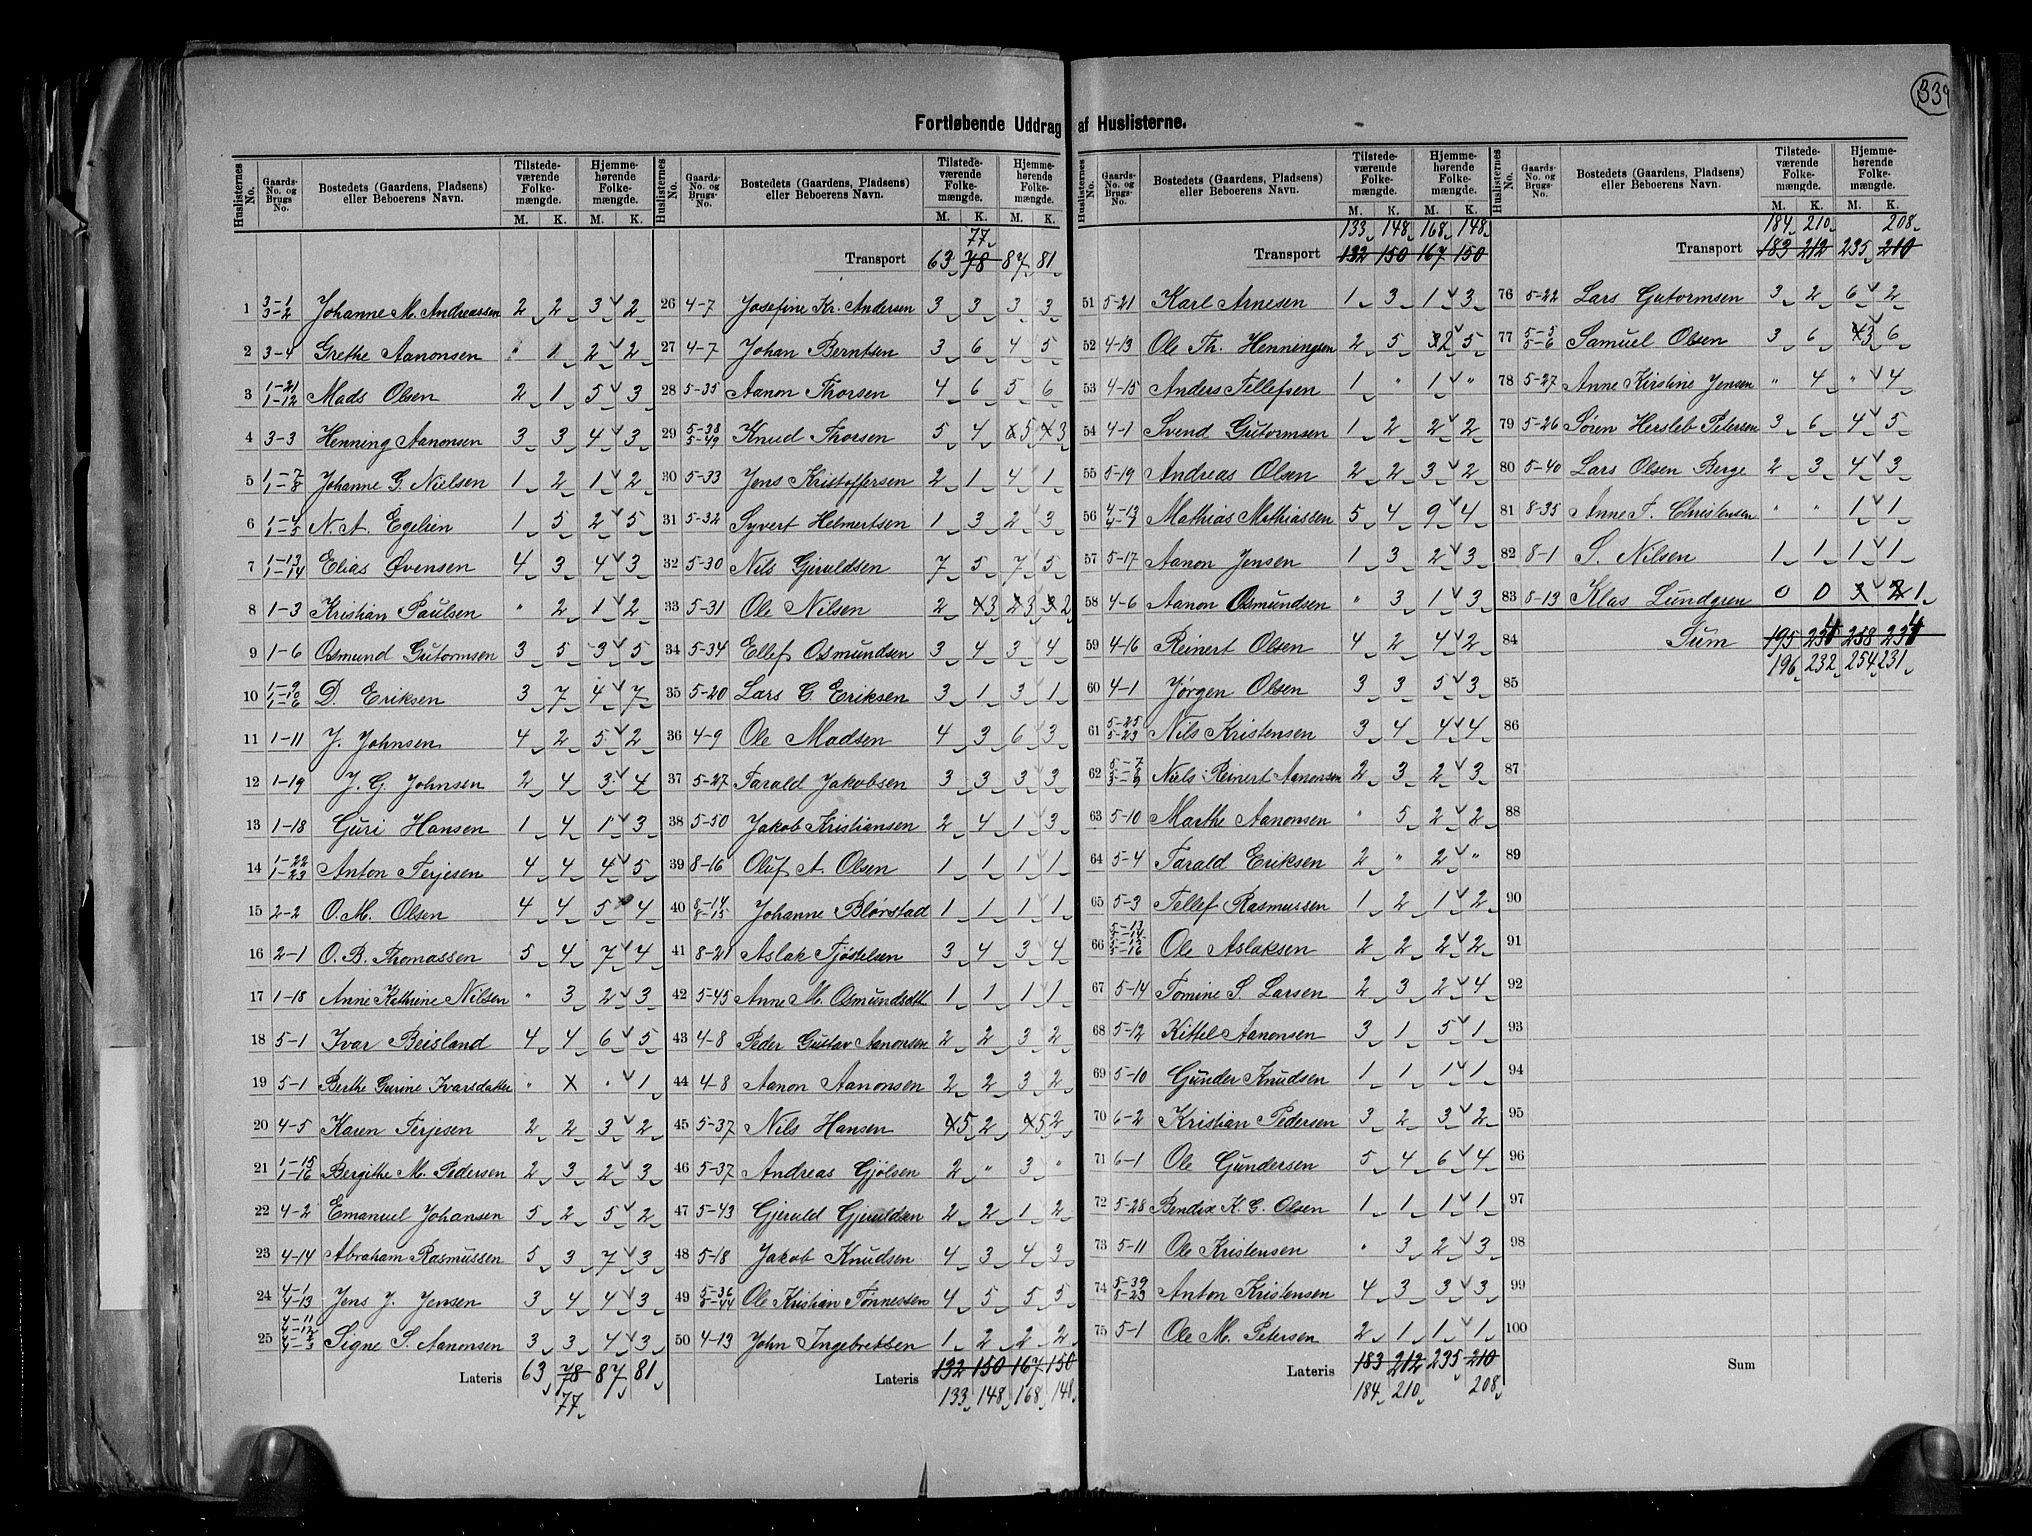 339
Fortløbende Uddrag af Huslisterne.
Huslisternes No. Gaards-No. og Brugs-No. Bostedets (Gaardens, Pladsens) eller Beboerens Navn. Tilstedeværende Folkemængde. M. K. Hjemmehørende Folkemængde. M. K.
1 3-1 3-2 Johanne M. Andreassen 2 2 3 2
2 3-4 Grethe Aanonsen " 1 2 2
3 1-21 1-12 Mads Olsen 2 1 5 3
4 3-3 Henning Aanonsen 3 3 4 3
5 1-7 1-8 Johanne G. Nielsen 1 2 1 2
6 1-4 1-5 N. A. Egelien 1 5 2 5
7 1-13 1-14 Elias Øvensen 4 3 4 3
8 1-3 Kristian Paulsen " 2 1 2
9 1-6 Osmund Gutormsen 3 5 3 5
10 1-9 1-10 1-6 D. Eriksen 3 7 4 7
11 1-11 J. Johnsen 4 2 5 2
12 1-19 J. G. Johnsen 2 4 3 4
13 1-18 Guri Hansen 1 4 1 3
14 1-22 1-23 Anton Terjesen 4 4 4 5
15 2-2 O. M. Olsen 4 4 5 4
16 2-1 O. B. Thomassen 5 4 7 4
17 1-18 Anne Kathrine Nilsen " 3 2 3
18 5-1 Ivar Beisland 4 4 6 5
19 5-1 Berthe Gurine Ivarsdatter " x " 1
20 4-5 Karen Terjesen 2 2 3 2
21 1-15 1-16 Bergithe M. Pedersen 2 3 2 3
22 4-2 Emanuel Johansen 5 2 5 2
23 4-14 Abraham Rasmussen 5 3 7 3
24 4-1 4-13 Jens J. Jensen 3 4 4 3
25 4-11 4-12 4-3 Signe S. Aanonsen 3 3 4 3
Lateris 63 78 87 81
77
Huslisternes No. Gaards-No. og Brugs-No. Bostedets (Gaardens, Pladsens) eller Beboerens Navn. Tilstedeværende Folkemængde. M. K. Hjemmehørende Folkemængde. M. K.
77
Transport 63 78 87 81
26 4-7 Josefine Kr. Andersen 3 3 3 3
27 4-7 Johan Berntsen 3 6 4 5
28 5-35 Aanon Thorsen 4 6 5 6
29 5-38 5-49 Knud Thorsen 5 4 x5 x3
30 5-33 Jens Kristoffersen 2 1 4 1
31 5-32 Syvert Helmertsen 1 3 2 3
32 5-30 Nils Gjeruldsen 7 5 7 5
33 5-31 Ole Nilsen 2 43 23 32
34 5-34 Ellef Osmundsen 3 4 3 4
35 5-20 Lars G Eriksen 3 1 3 1
36 4-9 Ole Madsen 4 3 6 3
37 5-27 Tarald Jakobsen 3 3 3 3
38 5-50 Jakob Kristiansen 2 4 1 3
39 8-16 Oluf A. Olsen 1 1 1 1
40 8-14 8-15 Johanne Blørstad 1 1 1 1
41 8-21 Aslak Tjøstelsen 3 4 3 4
42 5-45 Anne M. Osmundsdtt 1 1 1 1
43 4-8 Peder Gustav Aanonsen 2 2 3 2
44 4-8 Aanon Aanonsen 2 2 3 2
45 5-37 Nils Hansen 45 2 45 2
46 5-37 Andreas Gjølsen 2 " 3 "
47 5-43 Gjeruld Gjeruldsen 2 2 1 2
48 5-18 Jakob Knudsen 4 3 4 3
49 5-36 5-44 Ole Kristian Tönnessen 4 5 5 5
50 4-13 John Ingebretsen 1 2 2 2
Lateris 132 150 167 150
133 148 168 148
Huslisternes No. Gaards-No. og Brugs-No. Bostedets (Gaardens, Pladsens) eller Beboerens Navn. Tilstedeværende Folkemængde. M. K. Hjemmehørende Folkemængde. M. K.
133 148 168 148
Transport 132 150 167 150
51 5-21 Karl Arnesen 1 3 1 3
52 4-13 Ole Th. Henningsen 2 5 32 5
53 4-15 Anders Tellefsen 1 " 1 "
54 4-1 Svend Gutormsen 1 2 2 2
55 5-19 Andreas Olsen 2 2 3 2
56 4-13 4-7 Mathias Mathiassen 5 4 9 4
57 5-17 Aanon Jensen 1 3 2 3
58 4-6 Aanon Osmundsen " 3 1 3
59 4-16 Reinert Olsen 4 2 4 2
60 4-1 Jørgen Olsen 3 3 5 3
61 5-25 5-23 Nils Kristensen 3 4 4 4
62 5-7 5-8 Niels Reinert Aanonsen 2 3 2 3
63 5-10 Marthe Aanonsen " 5 2 2
64 5-4 Tarald Eriksen 2 " 2 "
65 5-3 Tellef Rasmussen 1 2 1 2
66 5-13 5-14 5-15 5-16 Ole Aslaksen 2 2 2 2
67 5-14 Tomine S. Larsen 2 3 2 4
68 5-12 Kittel Aanonsen 3 1 5 1
69 5-10 Gunder Knudsen 1 1 1 1
70 6-2 Kristian Pedersen 3 2 3 2
71 6-1 Ole Gundersen 5 4 6 4
72 5-28 Bendix K. G. Olsen 1 1 1 1
73 5-11 Ole Kristensen " 3 2 3
74 5-39 8-23 Anton Kristensen 4 3 3 3
75 5-1 Ole M. Petersen 2 1 1 1
Lateris 183 212 235 210
184 210 208
Huslisternes No. Gaards-No. og Brugs-No. Bostedets (Gaardens, Pladsens) eller Beboerens Navn. Tilstedeværende Folkemængde. M. K. Hjemmehørende Folkemængde. M. K.
184 210 208
Transport 183 212 235 210
76 5-22 Lars Gutormsen 3 2 6 2
77 5-5 5-6 Samuel Olsen 3 6 43 6
78 5-27 Anne Kirstine Jensen " 4 " 4
79 5-26 Søren Hersleb Petersen 3 6 4 5
80 5-40 Lars Olsen Berge 2 3 4 3
81 8-35 Anne T. Christensen " " 1 1
82 8-1 S. Nilsen 1 1 1 1
83 8-13 Klas Lundgren 0 0 x 21
84 Sum 195 234 258 234
196 232 254 231
85
86
87
88
89
90
91
92
93
94
95
96
97
98
99
100
Sum